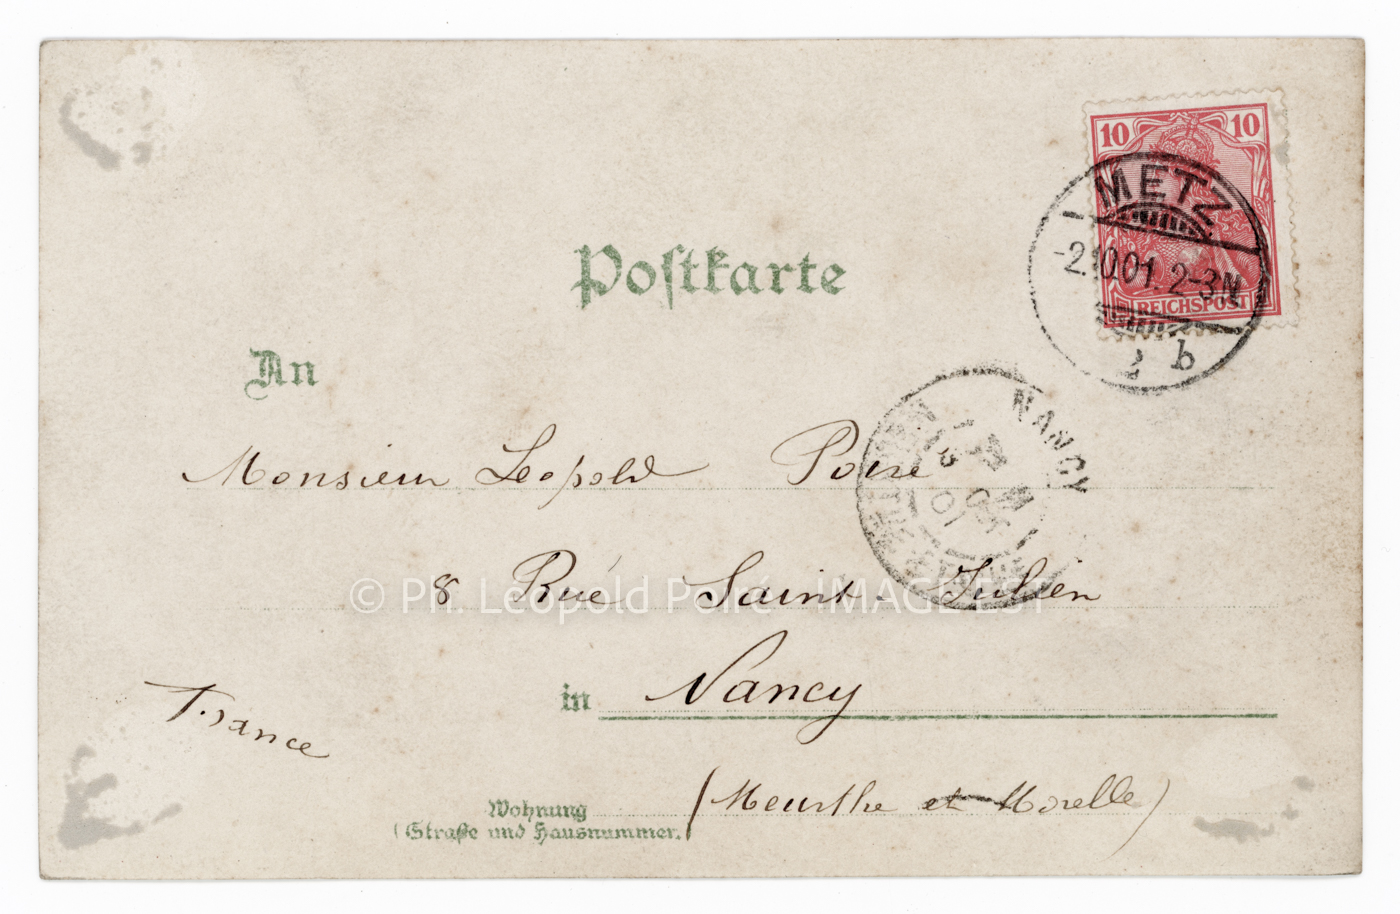 10 10
METZ
-2.10.01. 2-3N
REICHSPOST
2 b
Postkarte
An
NANCY
Monsieur Leopold Poiré
8 Rué Saint-Julien
© Ph. Léopold Poiré IMAGE'EST
in Nancy
France
(Meurthe et Morelle)
Wohnung
(Straße und Hausnummer.)